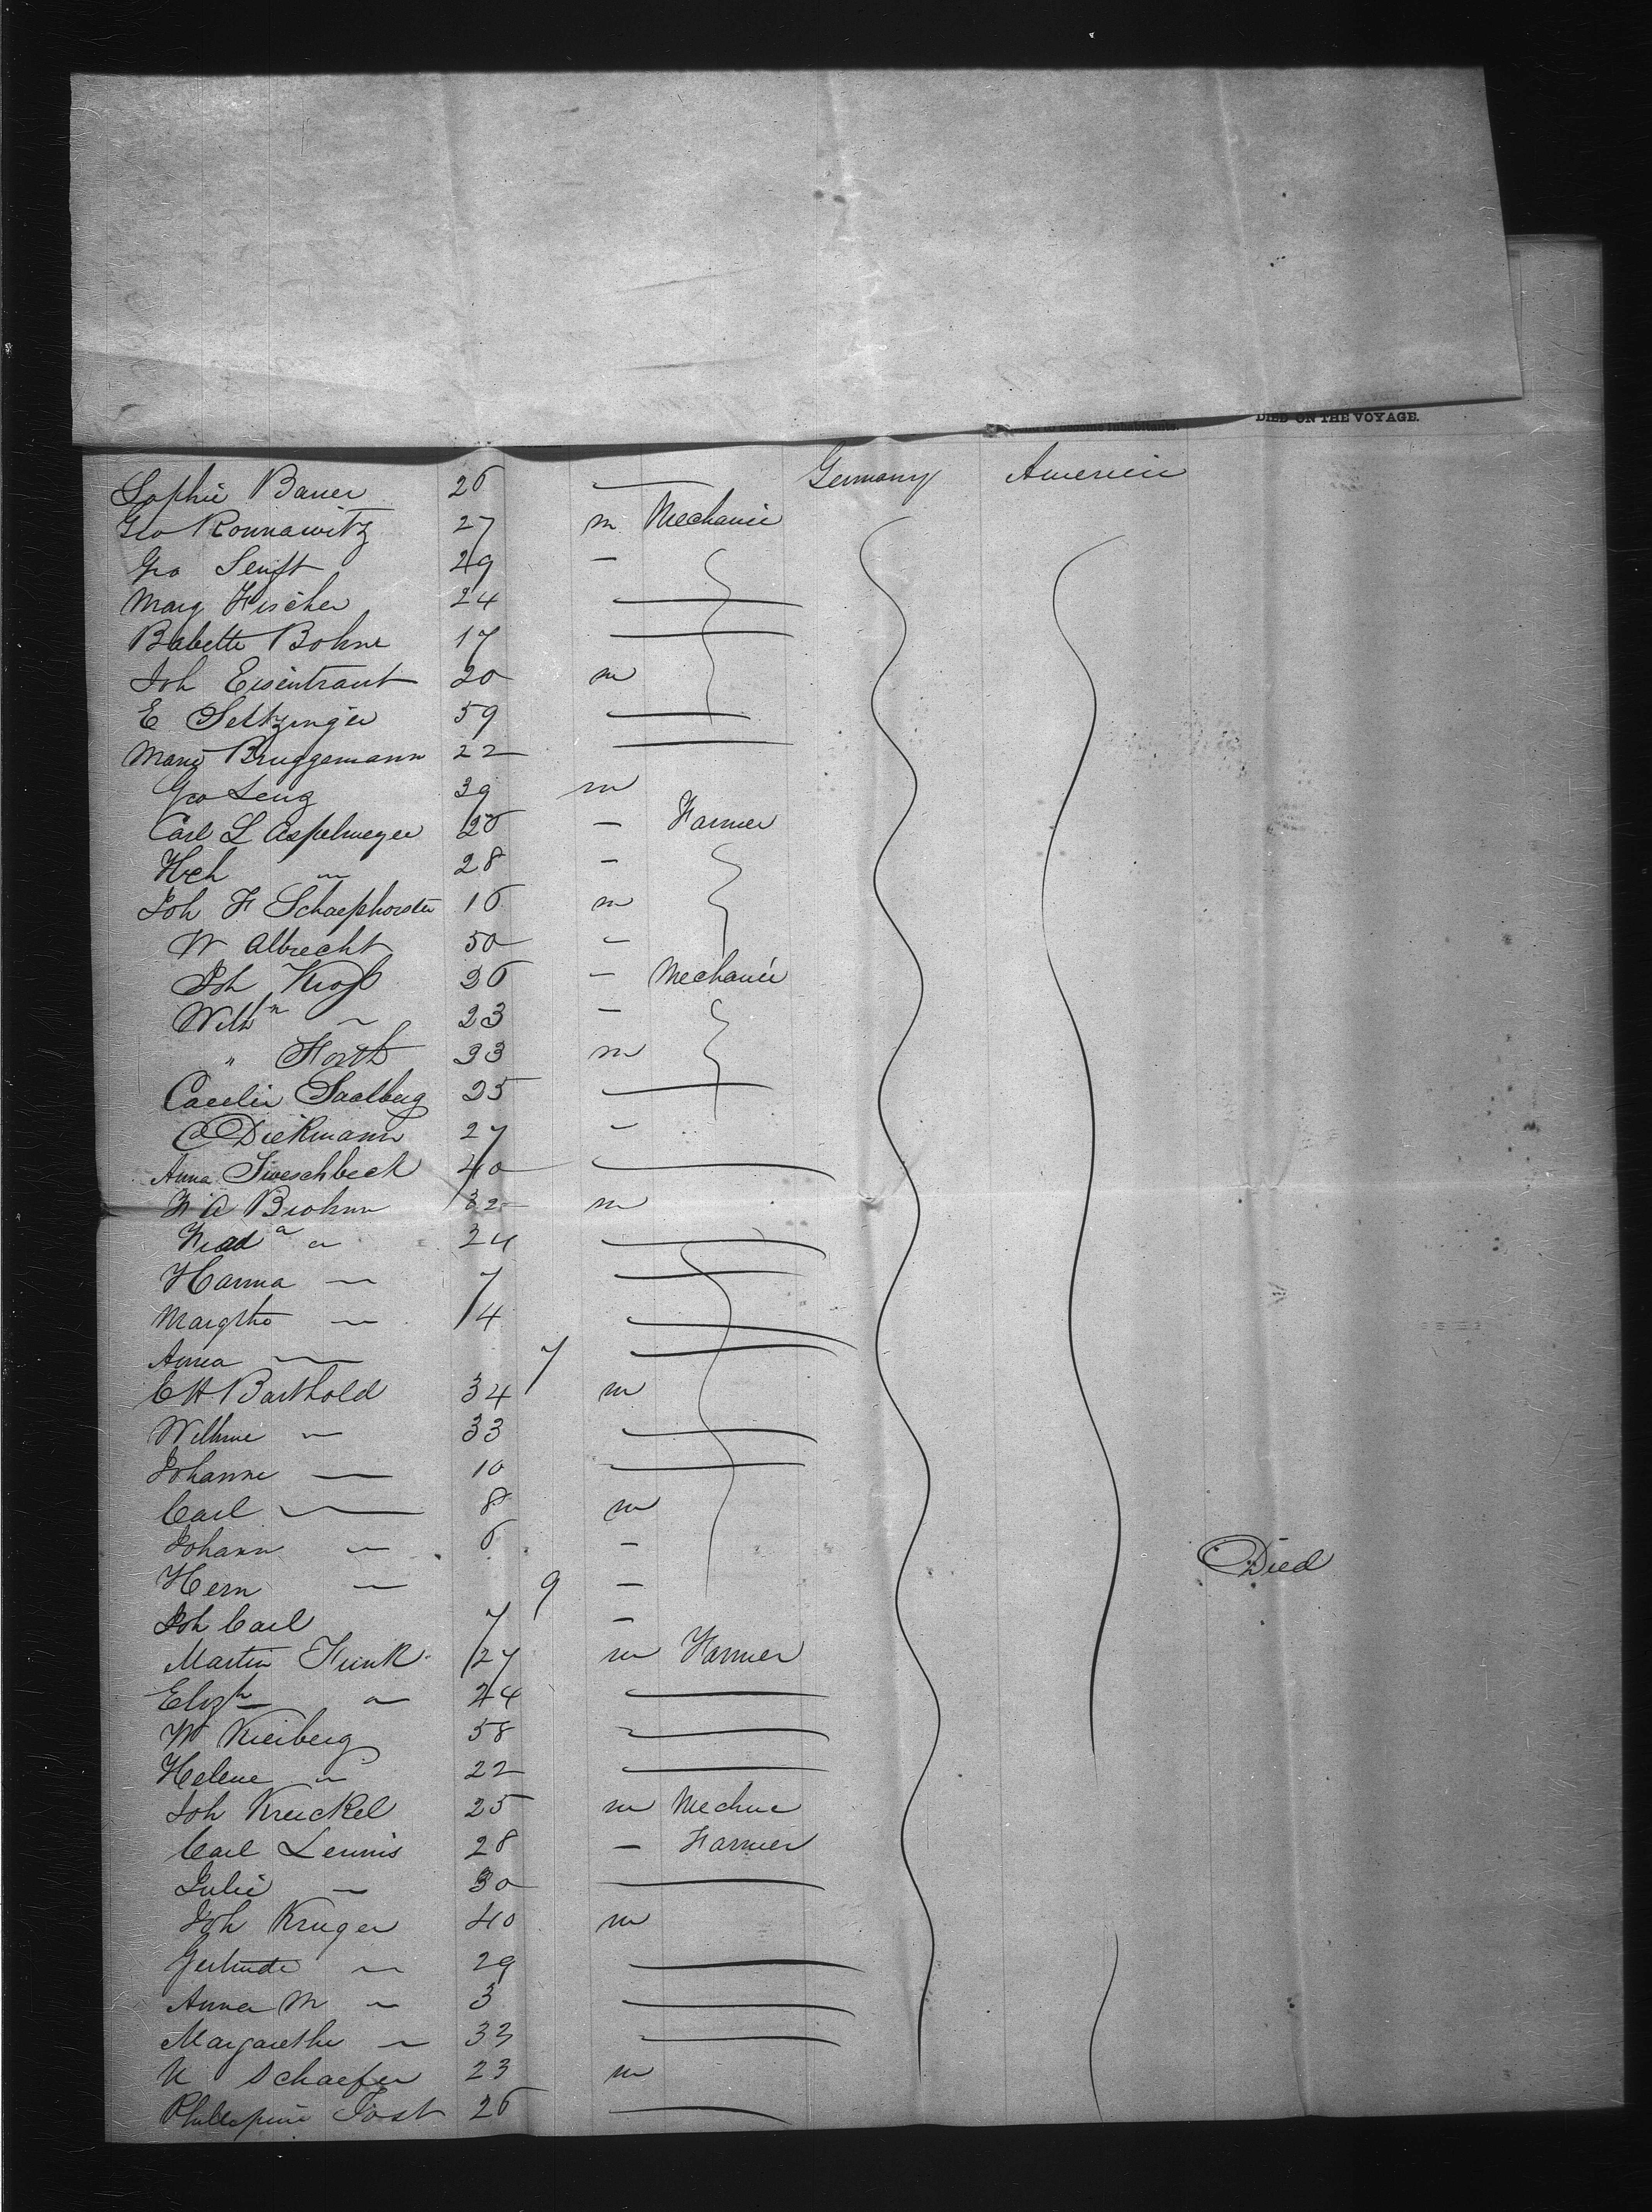 to become inhabitants. DIED ON THE VOYAGE.
Sophie Bauer 26 — Germany America
Geo Ronnawitz 27 m Mechanic
Geo Senft 29 -
Marg Fischer 24 —
Babette Bohne 17 —
Joh Eisentraut 20 m
E Seltzinger 59 —
Marie Bruggemann 22 —
Geo Leng 39 m
Carl L Aspelmeyer 26 - Farmer
Hch " 28 -
Joh F Schaephorster 16 m
W Albrecht 50 -
Joh Kroß 36 - Mechanic
Wilhm " 23 -
" Forth 33 m
Caecelie Saalberg 25 —
C Diekmann 27 -
Anna 40 —
F A Brohm 32 m
" 24 —
Hanna " 7 —
Margrthe " 4 —
Anna " 7 —
C H Barthold 34 m
Wilhme " 33 —
Johanne " 10 —
Carl " 8 m
Johann " 6 -
Hern " 9 - Died
Joh Carl 7 -
Martin Funk 27 m Farmer
Elizth " 24 —
W Kreiberg 58 —
Helene " 22 —
Joh Kreuckel 25 m Mechnc
Carl Lennis 28 - Farmer
Julie " 30 —
Joh Kruger 40 m
Gertrude " 29 —
Anna M " 3 —
Margarethe " 33 —
N Schaefer 23 m
Phillepine Jost 26 —